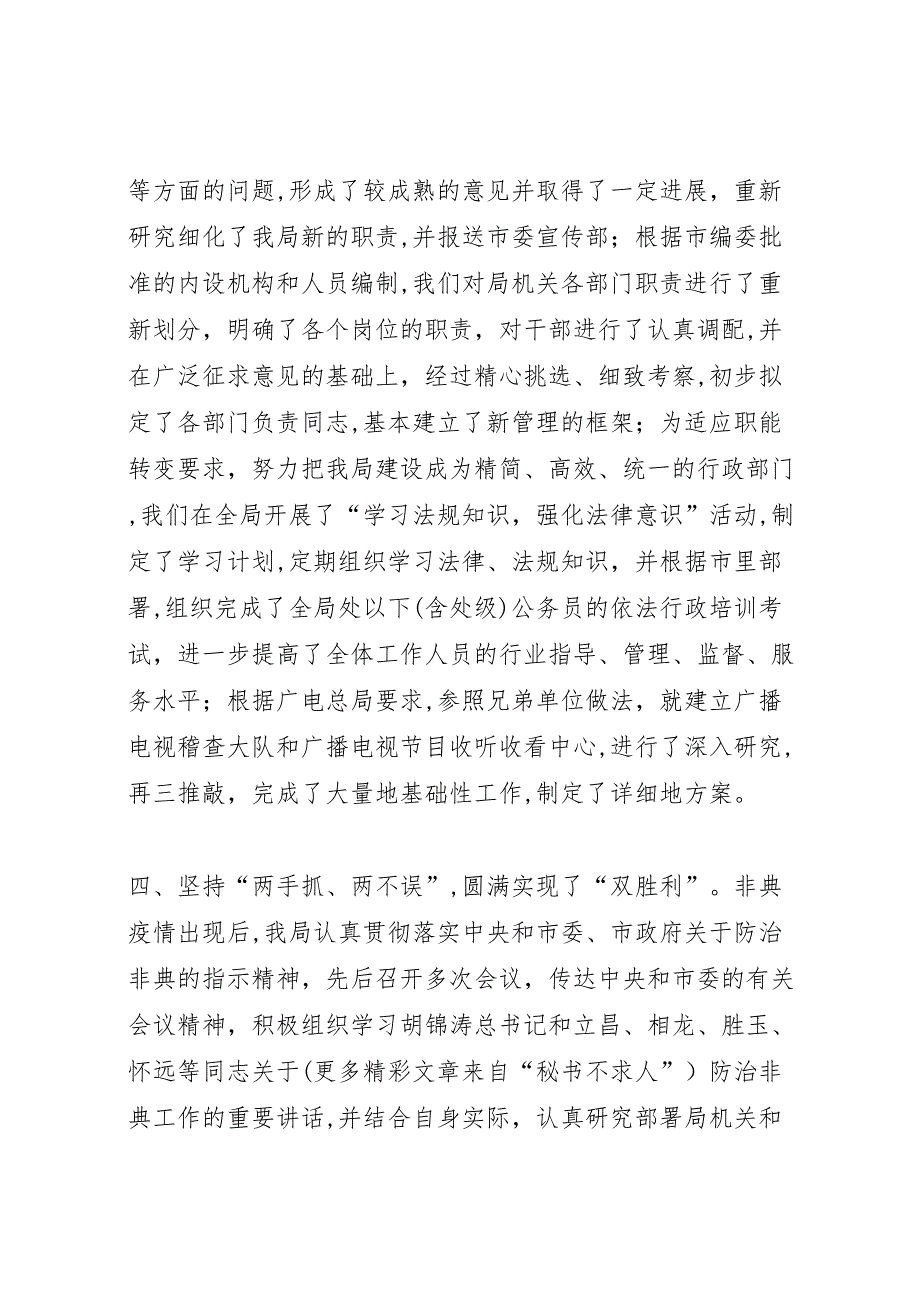 等方面的问题,形成了较成熟的意见并取得了一定进展，重新
研究细化了我局新的职责,并报送市委宣传部；根据市编委批
准的内设机构和人员编制,我们对局机关各部门职责进行了重
新划分，明确了各个岗位的职责，对干部进行了认真调配,并
在广泛征求意见的基础上，经过精心挑选、细致考察,初步拟
定了各部门负责同志,基本建立了新管理的框架；为适应职能
转变要求，努力把我局建设成为精简、高效、统一的行政部门
,我们在全局开展了“学习法规知识，强化法律意识”活动,制
定了学习计划,定期组织学习法律、法规知识，并根据市里部
署,组织完成了全局处以下(含处级)公务员的依法行政培训考
试，进一步提高了全体工作人员的行业指导、管理、监督、服
务水平；根据广电总局要求,参照兄弟单位做法，就建立广播
电视稽查大队和广播电视节目收听收看中心,进行了深入研究,
再三推敲，完成了大量地基础性工作,制定了详细地方案。
四、坚持“两手抓、两不误”,圆满实现了“双胜利”。非典
疫情出现后,我局认真贯彻落实中央和市委、市政府关于防治
非典的指示精神，先后召开多次会议，传达中央和市委的有关
会议精神，积极组织学习胡锦涛总书记和立昌、相龙、胜玉、
怀远等同志关于(更多精彩文章来自“秘书不求人”）防治非
典工作的重要讲话,并结合自身实际，认真研究部署局机关和